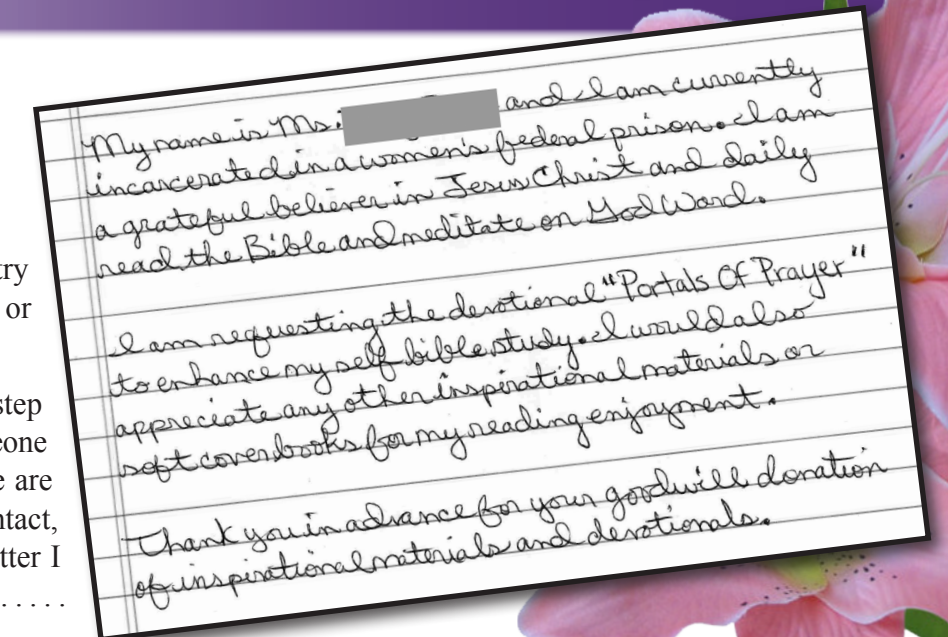 try
or
step
eone
e are
ntact,
tter I
. . . . .
My name is Ms. and I am currently
incarcerated in a women's federal prison. I am
a grateful believer in Jesus Christ and daily
read the Bible and meditate on God Word.
I am requesting the devotional "Portals Of Prayer"
to enhance my self bible study. I would also
appreciate any other inspirational materials or
soft cover books for my reading enjoyment.
Thank you in advance for your goodwill donation
of inspirational materials and devotionals.